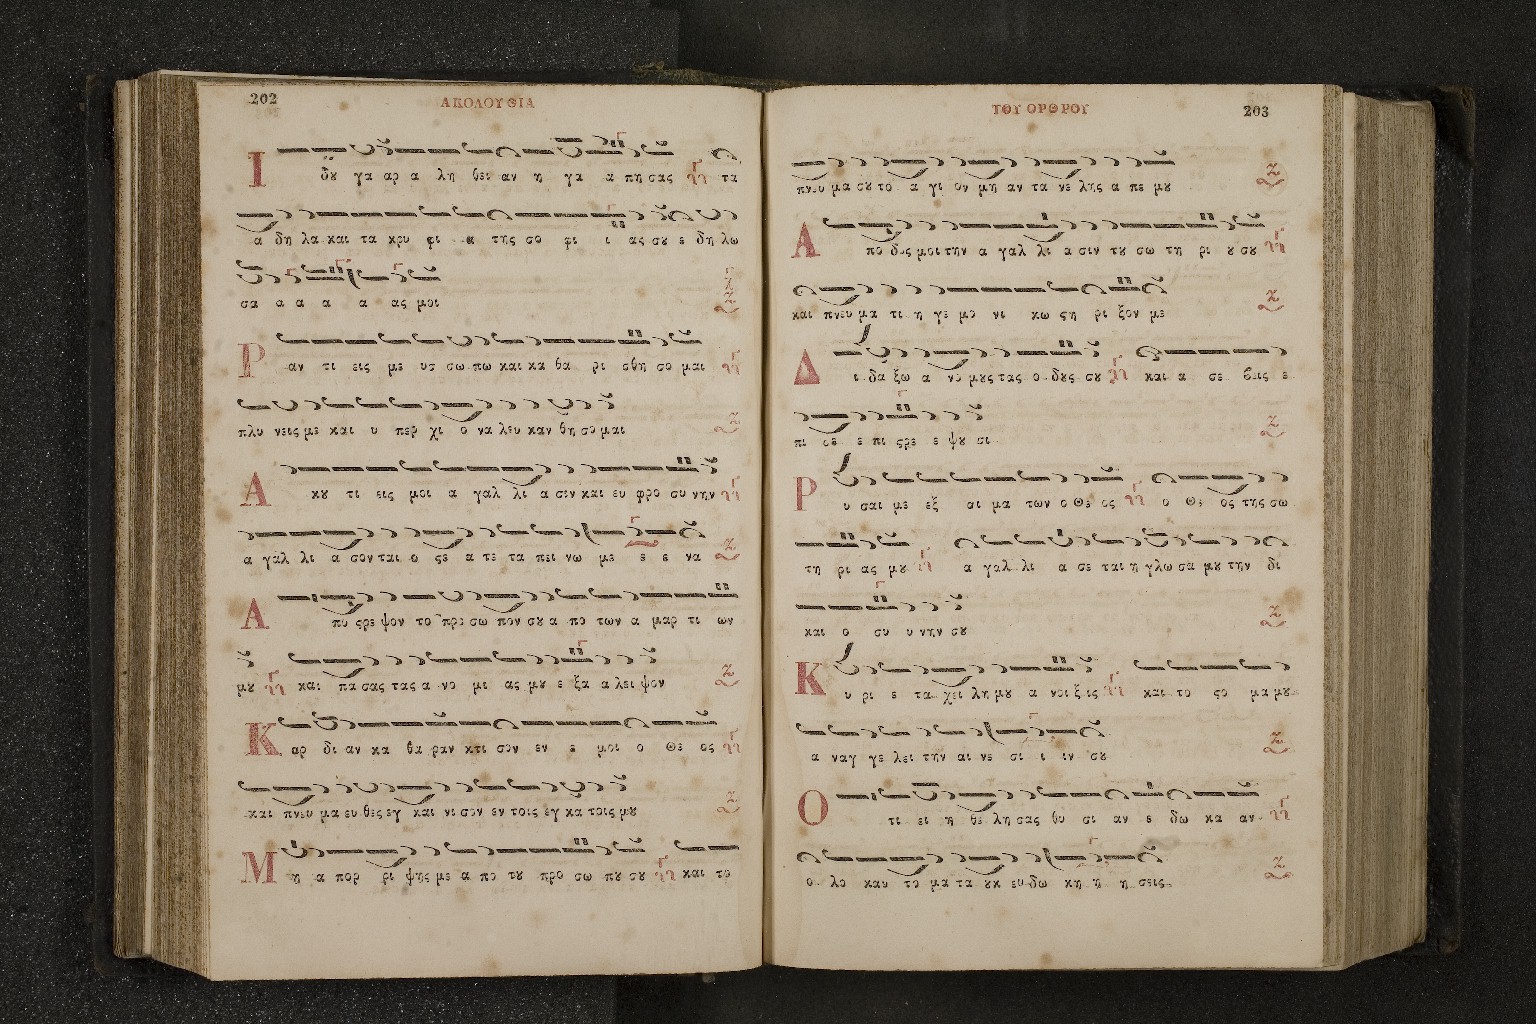 202 ΑΚΟΛΟΥΘΙΑ
Ι δȣ γα αρ α λη θει αν η γα α πη σας τα
α δη λα και τα κρυ φι α της σο φι ι ας σȣ ε δη λω
σα α α α α ας μοι
Ρ αν τι εις με υσ σω πω και κα θα ρι σθη σο μαι
πλυ νεις με και υ περ χι ο να λευ καν θη σο μαι
Α κȣ τι εις μοι α γαλ λι α σιν και ευ φρο συ νην
α γαλ λι α σον ται ο ϛε α τε τα πει νω με ε ε να
Α πο ϛρε ψον το προ σω πον σȣ α πο των α μαρ τι ων
μȣ και πα σας τας α νο μι ας μȣ ε ξα α λει ψον
Κ αρ δι αν κα θα ραν κτι σον εν ε μοι ο Θε ος
και πνευ μα ευ θες εγ και νι σον εν τοις εγ κα τοις μȣ
Μ η α πορ ρι ψης με α πο τȣ προ σω πȣ σȣ και το
ΤΟΥ ΟΡΘΡΟΥ 203
πνευ μα σȣ το α γι ον μη αν τα νε λης α π ε μȣ
Α πο δος μοι την α γαλ λι α σιν τȣ σω τη ρι ȣ σȣ
και πνευ μα τι η γε μο νι κω ϛη ρι ξον με
Δ ι δα ξω α νο μȣς τας ο δȣς σȣ και α σε βεις ε
πι σε ε πι ϛρε ε ψȣ σι
Ρ υ σαι με εξ αι μα των ο Θε ος ο Θε ος της σω
τη ρι ας μȣ α γαλ λι α σε ται η γλω σα μȣ την δι
και ο συ υ νην σȣ
Κ υ ρι ε τα χει λη μȣ α νοι ξεις και το ϛο μα μȣ
α ναγ γε λει την αι νε σι ι ιν σȣ
Ο τι ει η θε λη σας θυ σι αν ε δω κα αν
ο λο καυ το μα τα ȣκ ευ δω κη η η σεις